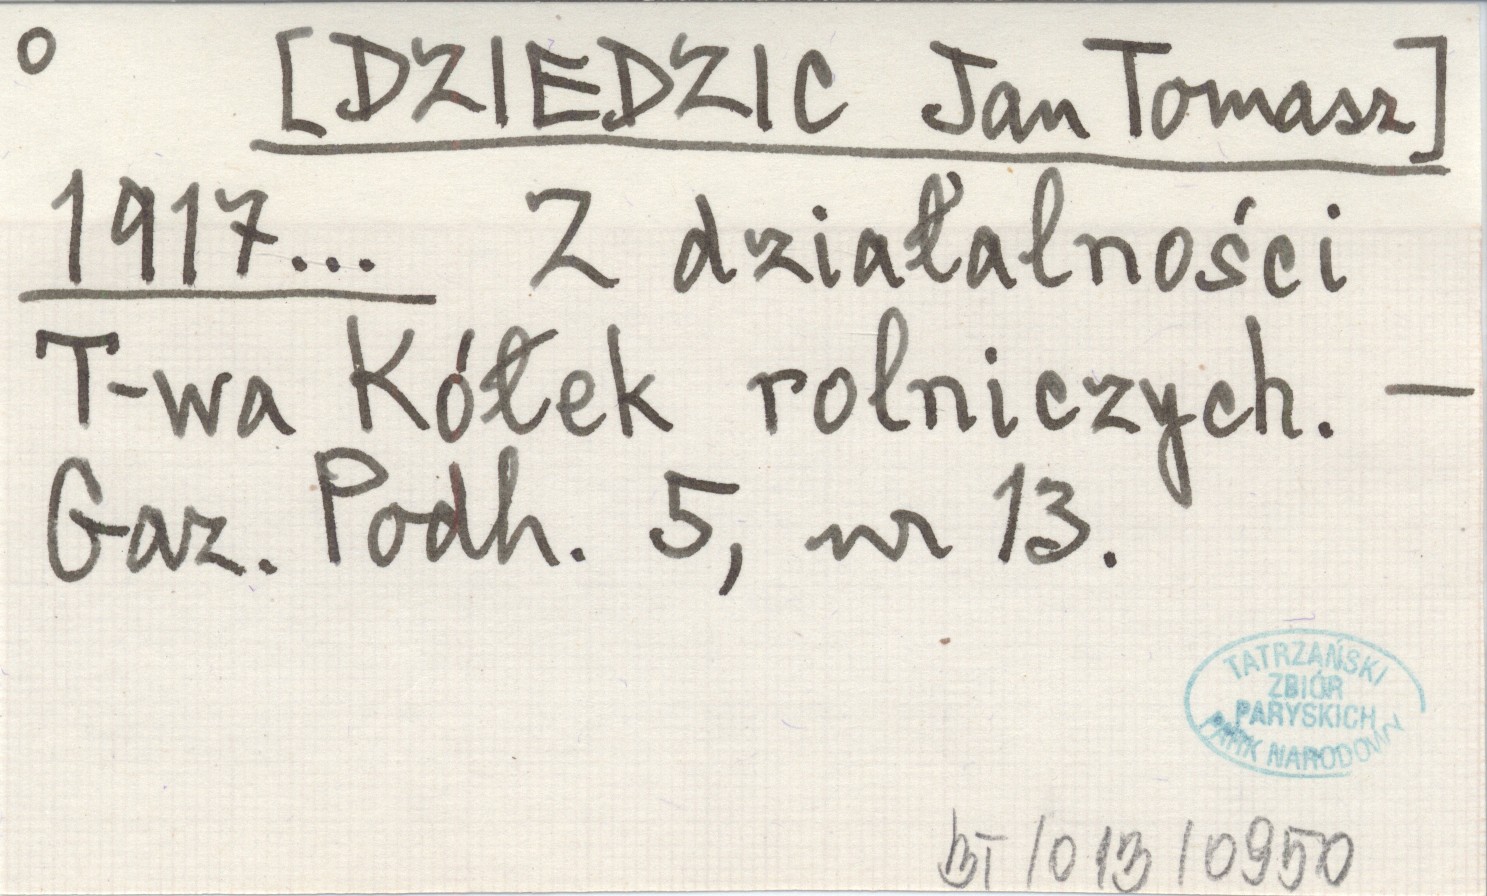 o [DZIEDZIC Jan Tomasz]
1917... Z działalności
T-wa Kółek rolniczych. —
Gaz. Podh. 5, nr 13.
TATRZAŃSKI
ZBIÓR
PARYSKICH
PARK NARODOWY
BT/013/0950